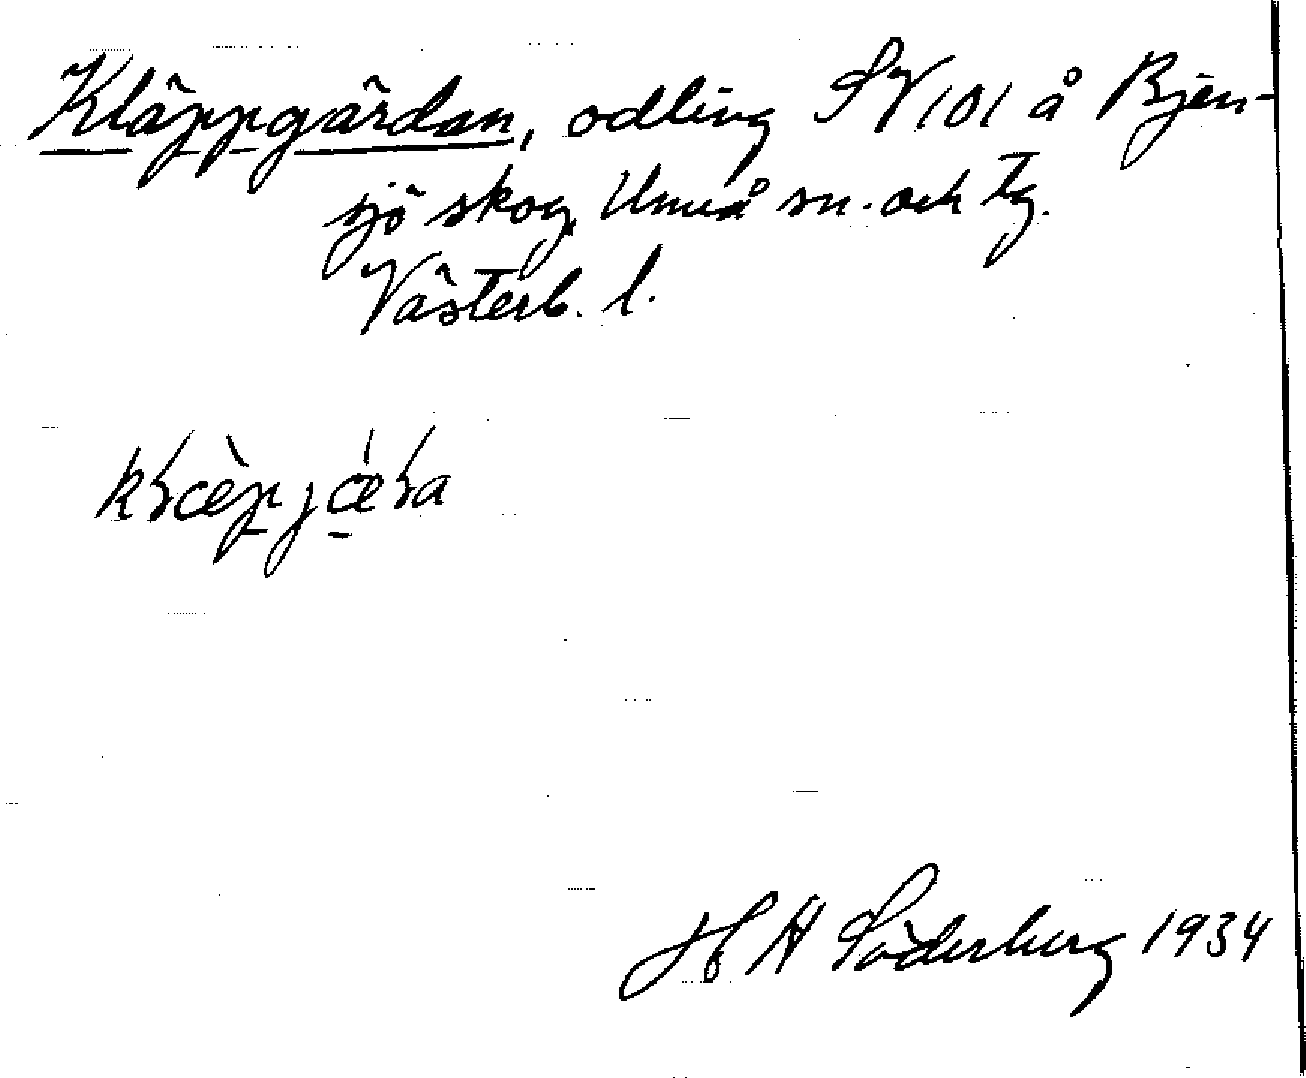 Kläppgärdan, odling SV 101 å Bjen-
sjö skog, Umeå sn. och tg.
Västerb. l.
H A Söderberg 1934